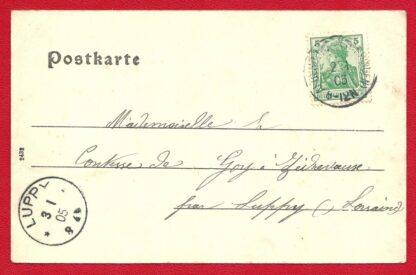 Postkarte
5 5
05
8-12N
Mademoiselle
Comtesse de Goy à
par Luppy (Lorraine)
2432
LUPPY
3 1
05
*